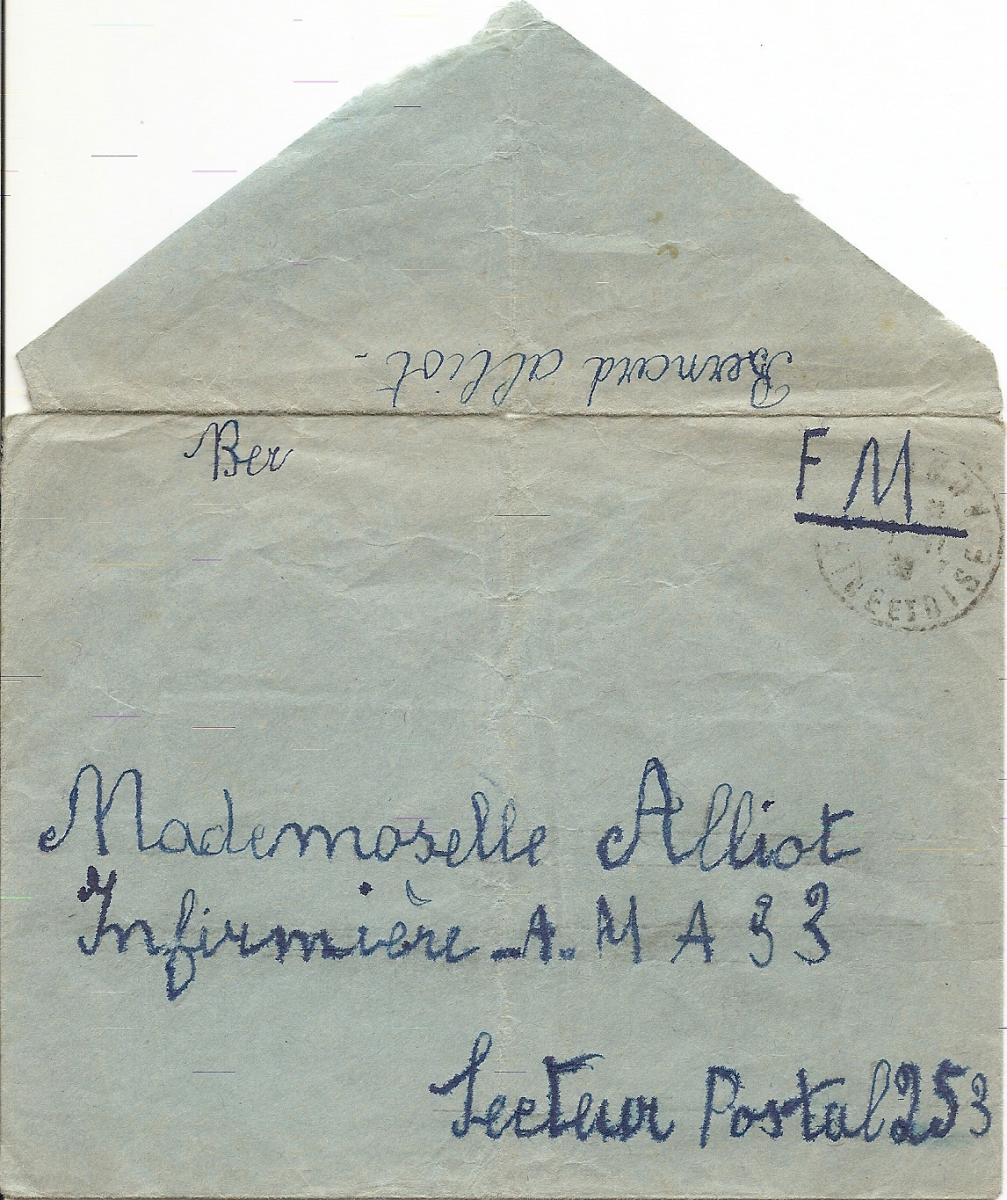 Bernard alliot -
Ber
F M
Mademoiselle Alliot
Infirmière - A. M A 33
Secteur Postal 253